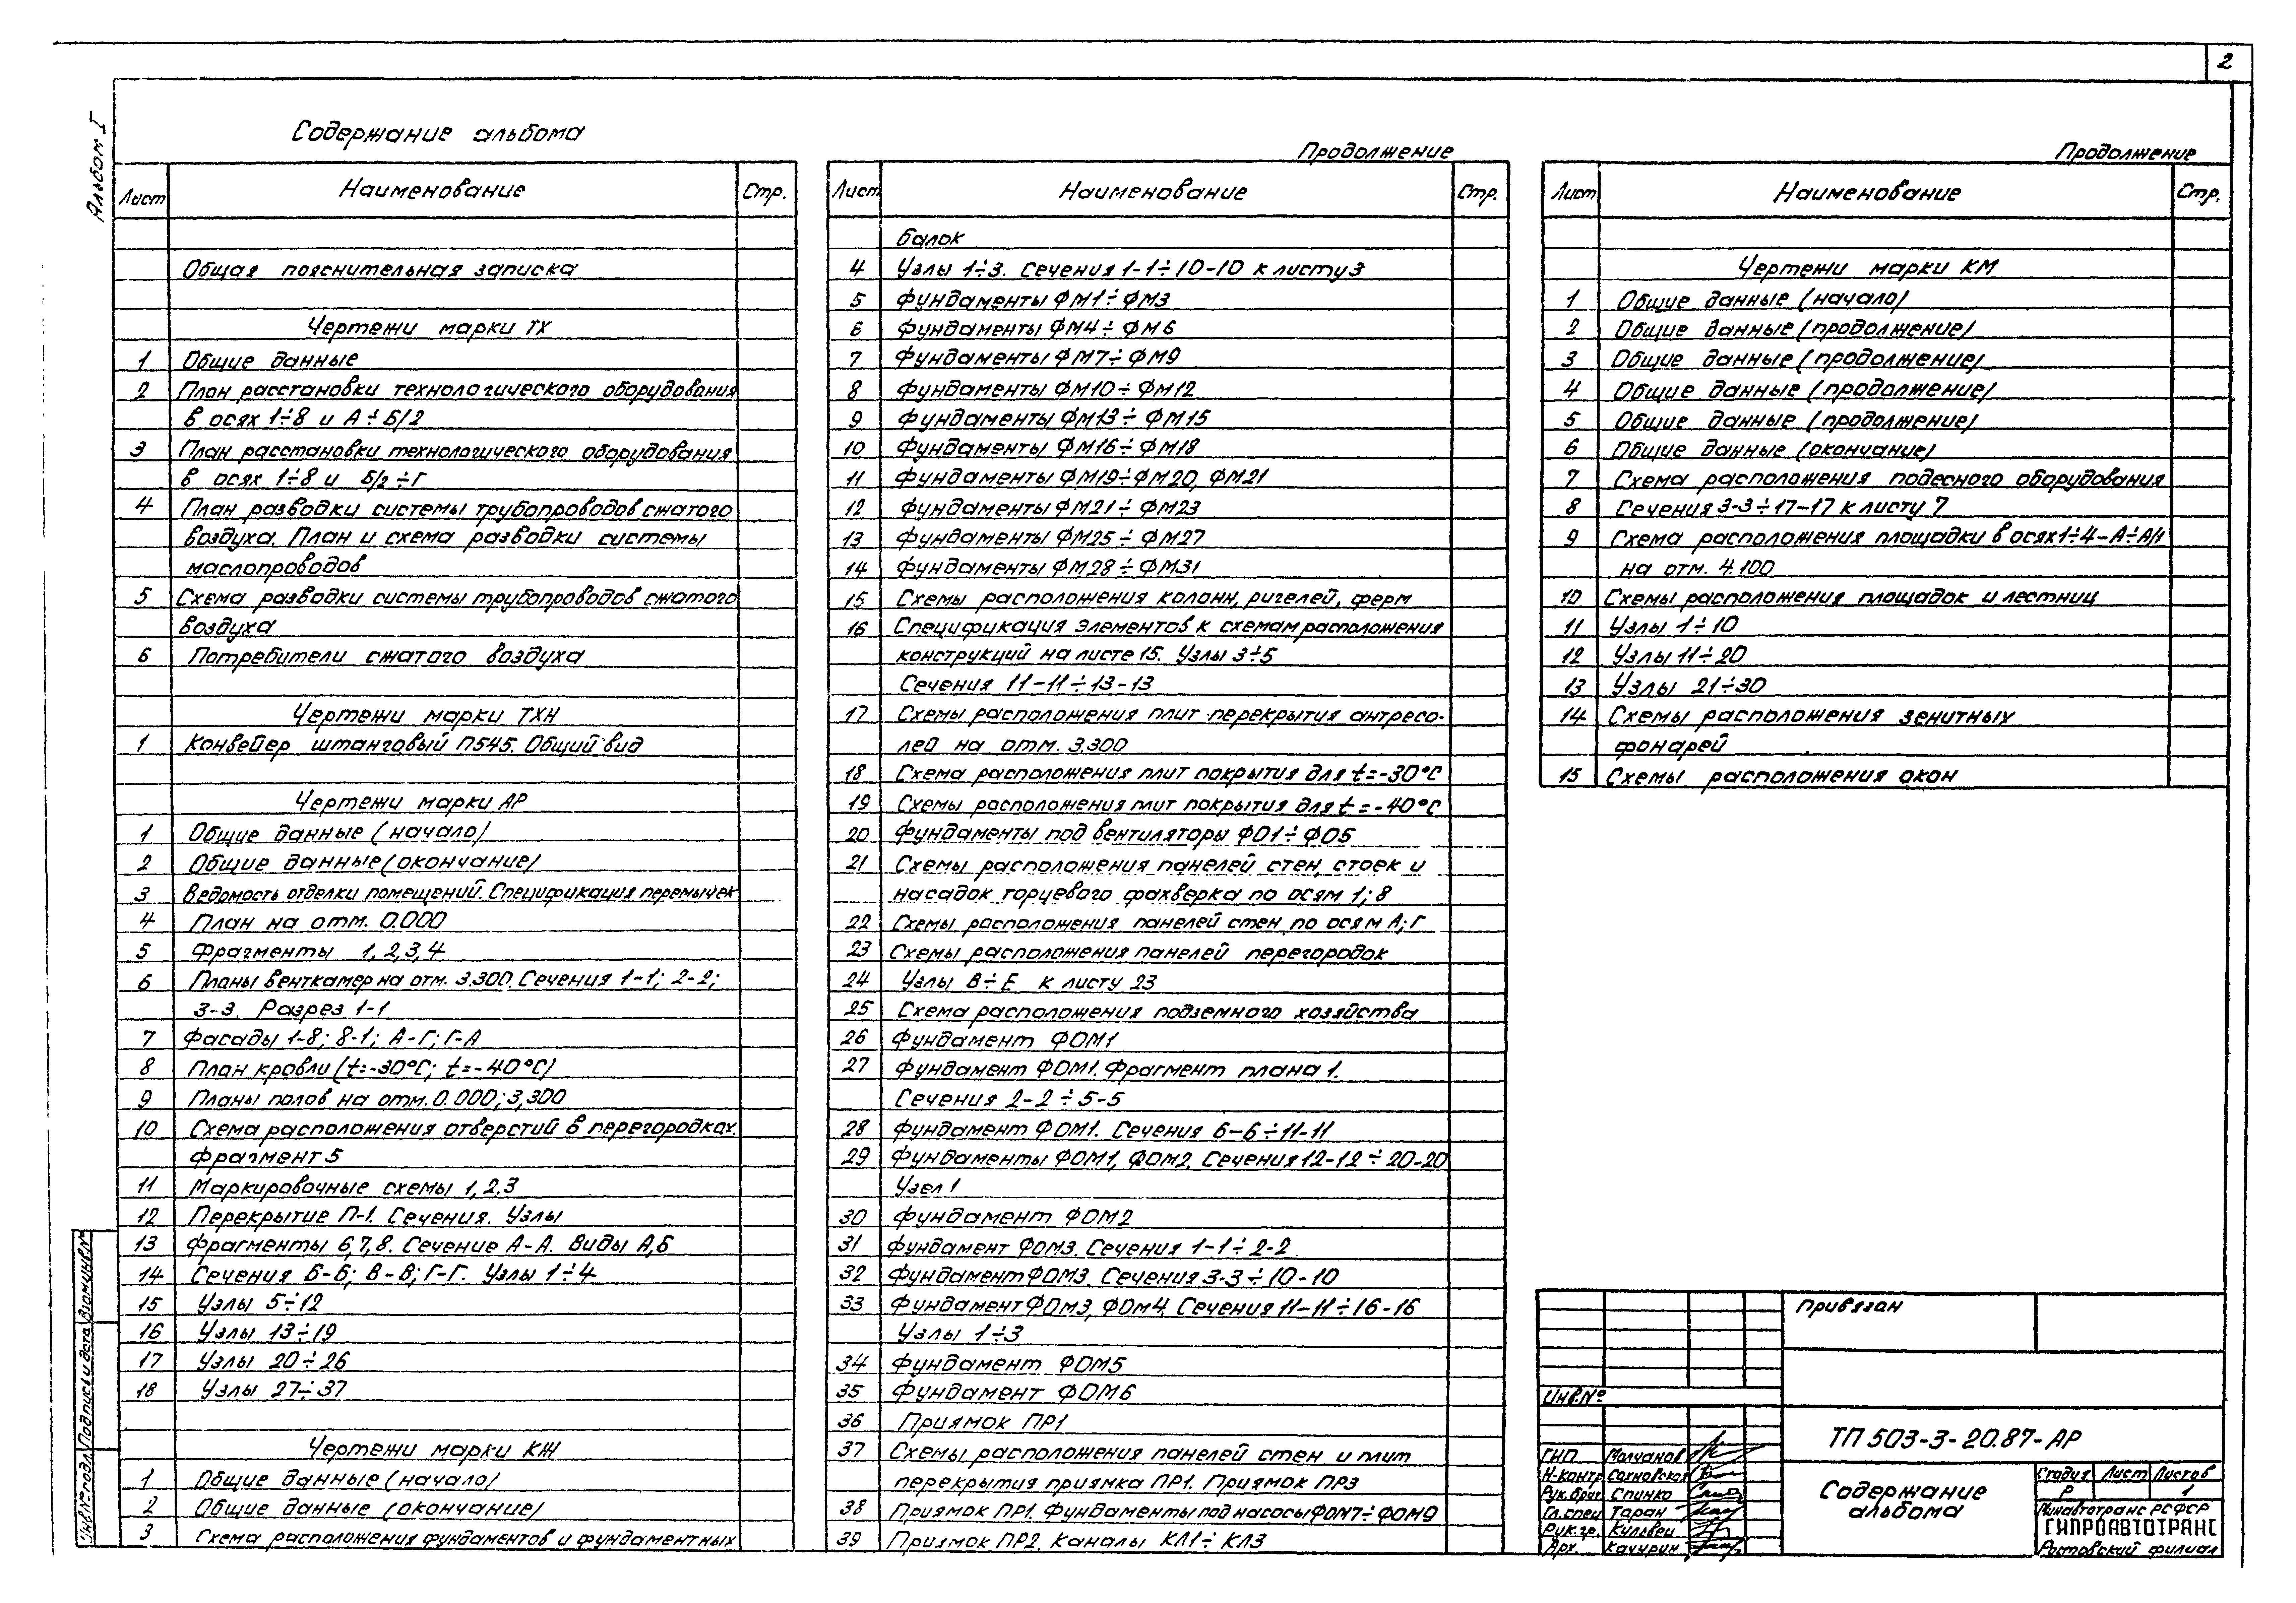 2
Альбом I
Содержание альбома
Лист Наименование Стр.
Общая пояснительная записка
Чертежи марки ТХ
1 Общие данные
2 План расстановки технологического оборудования
в осях 1÷8 и А÷Б/2
3 План расстановки технологического оборудования
в осях 1÷8 и Б/2÷Г
4 План разводки системы трубопроводов сжатого
воздуха. План и схема разводки системы
маслопроводов
5 Схема разводки системы трубопроводов сжатого
воздуха
6 Потребители сжатого воздуха
Чертежи марки ТХН
1 Конвейер штанговый П545. Общий вид
Чертежи марки АР
1 Общие данные (начало)
2 Общие данные (окончание)
3 Ведомость отделки помещений. Спецификация перемычек
4 План на отм. 0.000
5 Фрагменты 1, 2, 3, 4
6 Планы венткамер на отм. 3.300. Сечения 1-1; 2-2;
3-3. Разрез 1-1
7 Фасады 1-8; 8-1; А-Г; Г-А
8 План кровли (t=-30°С; t=-40°С)
9 Планы полов на отм. 0.000; 3,300
10 Схема расположения отверстий в перегородках.
Фрагмент 5
11 Маркировочные схемы 1, 2, 3
12 Перекрытие П-1. Сечения. Узлы
13 Фрагменты 6,7,8. Сечение А-А. Виды А,Б
14 Сечения Б-Б; В-В; Г-Г. Узлы 1÷4
15 Узлы 5÷12
16 Узлы 13÷19
17 Узлы 20÷26
18 Узлы 27÷37
Чертежи марки КЖ
1 Общие данные (начало)
2 Общие данные (окончание)
3 Схема расположения фундаментов и фундаментных
Продолжение
Лист Наименование Стр.
балок
4 Узлы 1÷3. Сечения 1-1÷10-10 к листу 3
5 Фундаменты ФМ1÷ФМ3
6 Фундаменты ФМ4÷ФМ6
7 Фундаменты ФМ7÷ФМ9
8 Фундаменты ФМ10÷ФМ12
9 Фундаменты ФМ13÷ФМ15
10 Фундаменты ФМ16÷ФМ18
11 Фундаменты ФМ19÷ФМ20, ФМ21
12 Фундаменты ФМ21÷ФМ23
13 Фундаменты ФМ25÷ФМ27
14 Фундаменты ФМ28÷ФМ31
15 Схемы расположения колонн, ригелей, ферм
16 Спецификация элементов к схемам расположения
конструкций на листе 15. Узлы 3÷5
Сечения 11-11÷13-13
17 Схемы расположения плит перекрытия антресо-
лей на отм. 3.300
18 Схема расположения плит покрытия для t=-30°С
19 Схемы расположения плит покрытия для t=-40°С
20 Фундаменты под вентиляторы ФО1÷ФО5
21 Схемы расположения панелей стен, стоек и
насадок торцевого фахверка по осям 1; 8
22 Схемы расположения панелей стен по осям А; Г
23 Схемы расположения панелей перегородок
24 Узлы В÷Е к листу 23
25 Схема расположения подземного хозяйства
26 Фундамент ФОМ1
27 Фундамент ФОМ1. Фрагмент плана 1.
Сечения 2-2÷5-5
28 Фундамент ФОМ1. Сечения 6-6÷11-11
29 Фундаменты ФОМ1, ФОМ2. Сечения 12-12÷20-20
Узел 1
30 Фундамент ФОМ2
31 Фундамент ФОМ3. Сечения 1-1÷2-2
32 Фундамент ФОМ3. Сечения 3-3÷10-10
33 Фундамент ФОМ3, ФОМ4. Сечения 11-11÷16-16
Узлы 1÷3
34 Фундамент ФОМ5
35 Фундамент ФОМ6
36 Приямок ПР1
37 Схемы расположения панелей стен и плит
перекрытия приямка ПР1. Приямок ПР3
38 Приямок ПР1. Фундаменты под насосы ФОМ7÷ФОМ9
39 Приямок ПР2, Каналы КЛ1÷КЛ3
Продолжение
Лист Наименование Стр.
Чертежи марки КМ
1 Общие данные (начало)
2 Общие данные (продолжение)
3 Общие данные (продолжение)
4 Общие данные (продолжение)
5 Общие данные (продолжение)
6 Общие данные (окончание)
7 Схема расположения подесного оборудования
8 Сечения 3-3÷17-17 к листу 7
9 Схема расположения площадки в осях 1÷4-А÷А/1
на отм. 4.100
10 Схемы расположения площадок и лестниц
11 Узлы 1÷10
12 Узлы 11÷20
13 Узлы 21÷30
14 Схемы расположения зенитных
фонарей
15 Схемы расположения окон
Привязан
Инв.№
ТП 503-3-20.87-АР
ГИП Молчанов
Н-контр. Сахновская
Рук.бриг. Спинко
Гл.спец Таран
Рук.гр. Кульвец
Арх. Качурин
Содержание
альбома
Стадия Лист Листов
Р 1
Минавтотранс РСФСР
ГИПРОАВТОТРАНС
Ростовский филиал
Инв.№ подл. Подпись и дата Взам.инв.№